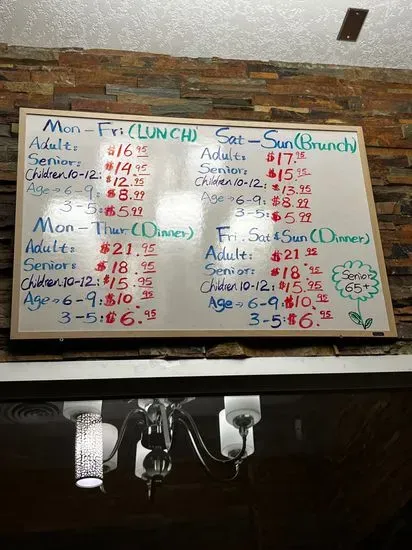 Mon - Fri (LUNCH)
Adult: $16.95
Senior: $14.95
Children 10-12: $12.95
Age → 6-9: $8.99
3-5: $5.99
Sat - Sun (Brunch)
Adult: $17.95
Senior: $15.95
Children 10-12: $13.95
Age → 6-9: $8.99
3-5: $5.99
Mon - Thur (Dinner)
Adult: $21.95
Senior: $18.95
Children 10-12: $15.95
Age → 6-9: $10.95
3-5: $6.95
Fri. Sat & Sun (Dinner)
Adult: $21.95
Senior: $18.95
Children 10-12: $15.95
Age → 6-9: $10.95
3-5: $6.95
Senior
65+